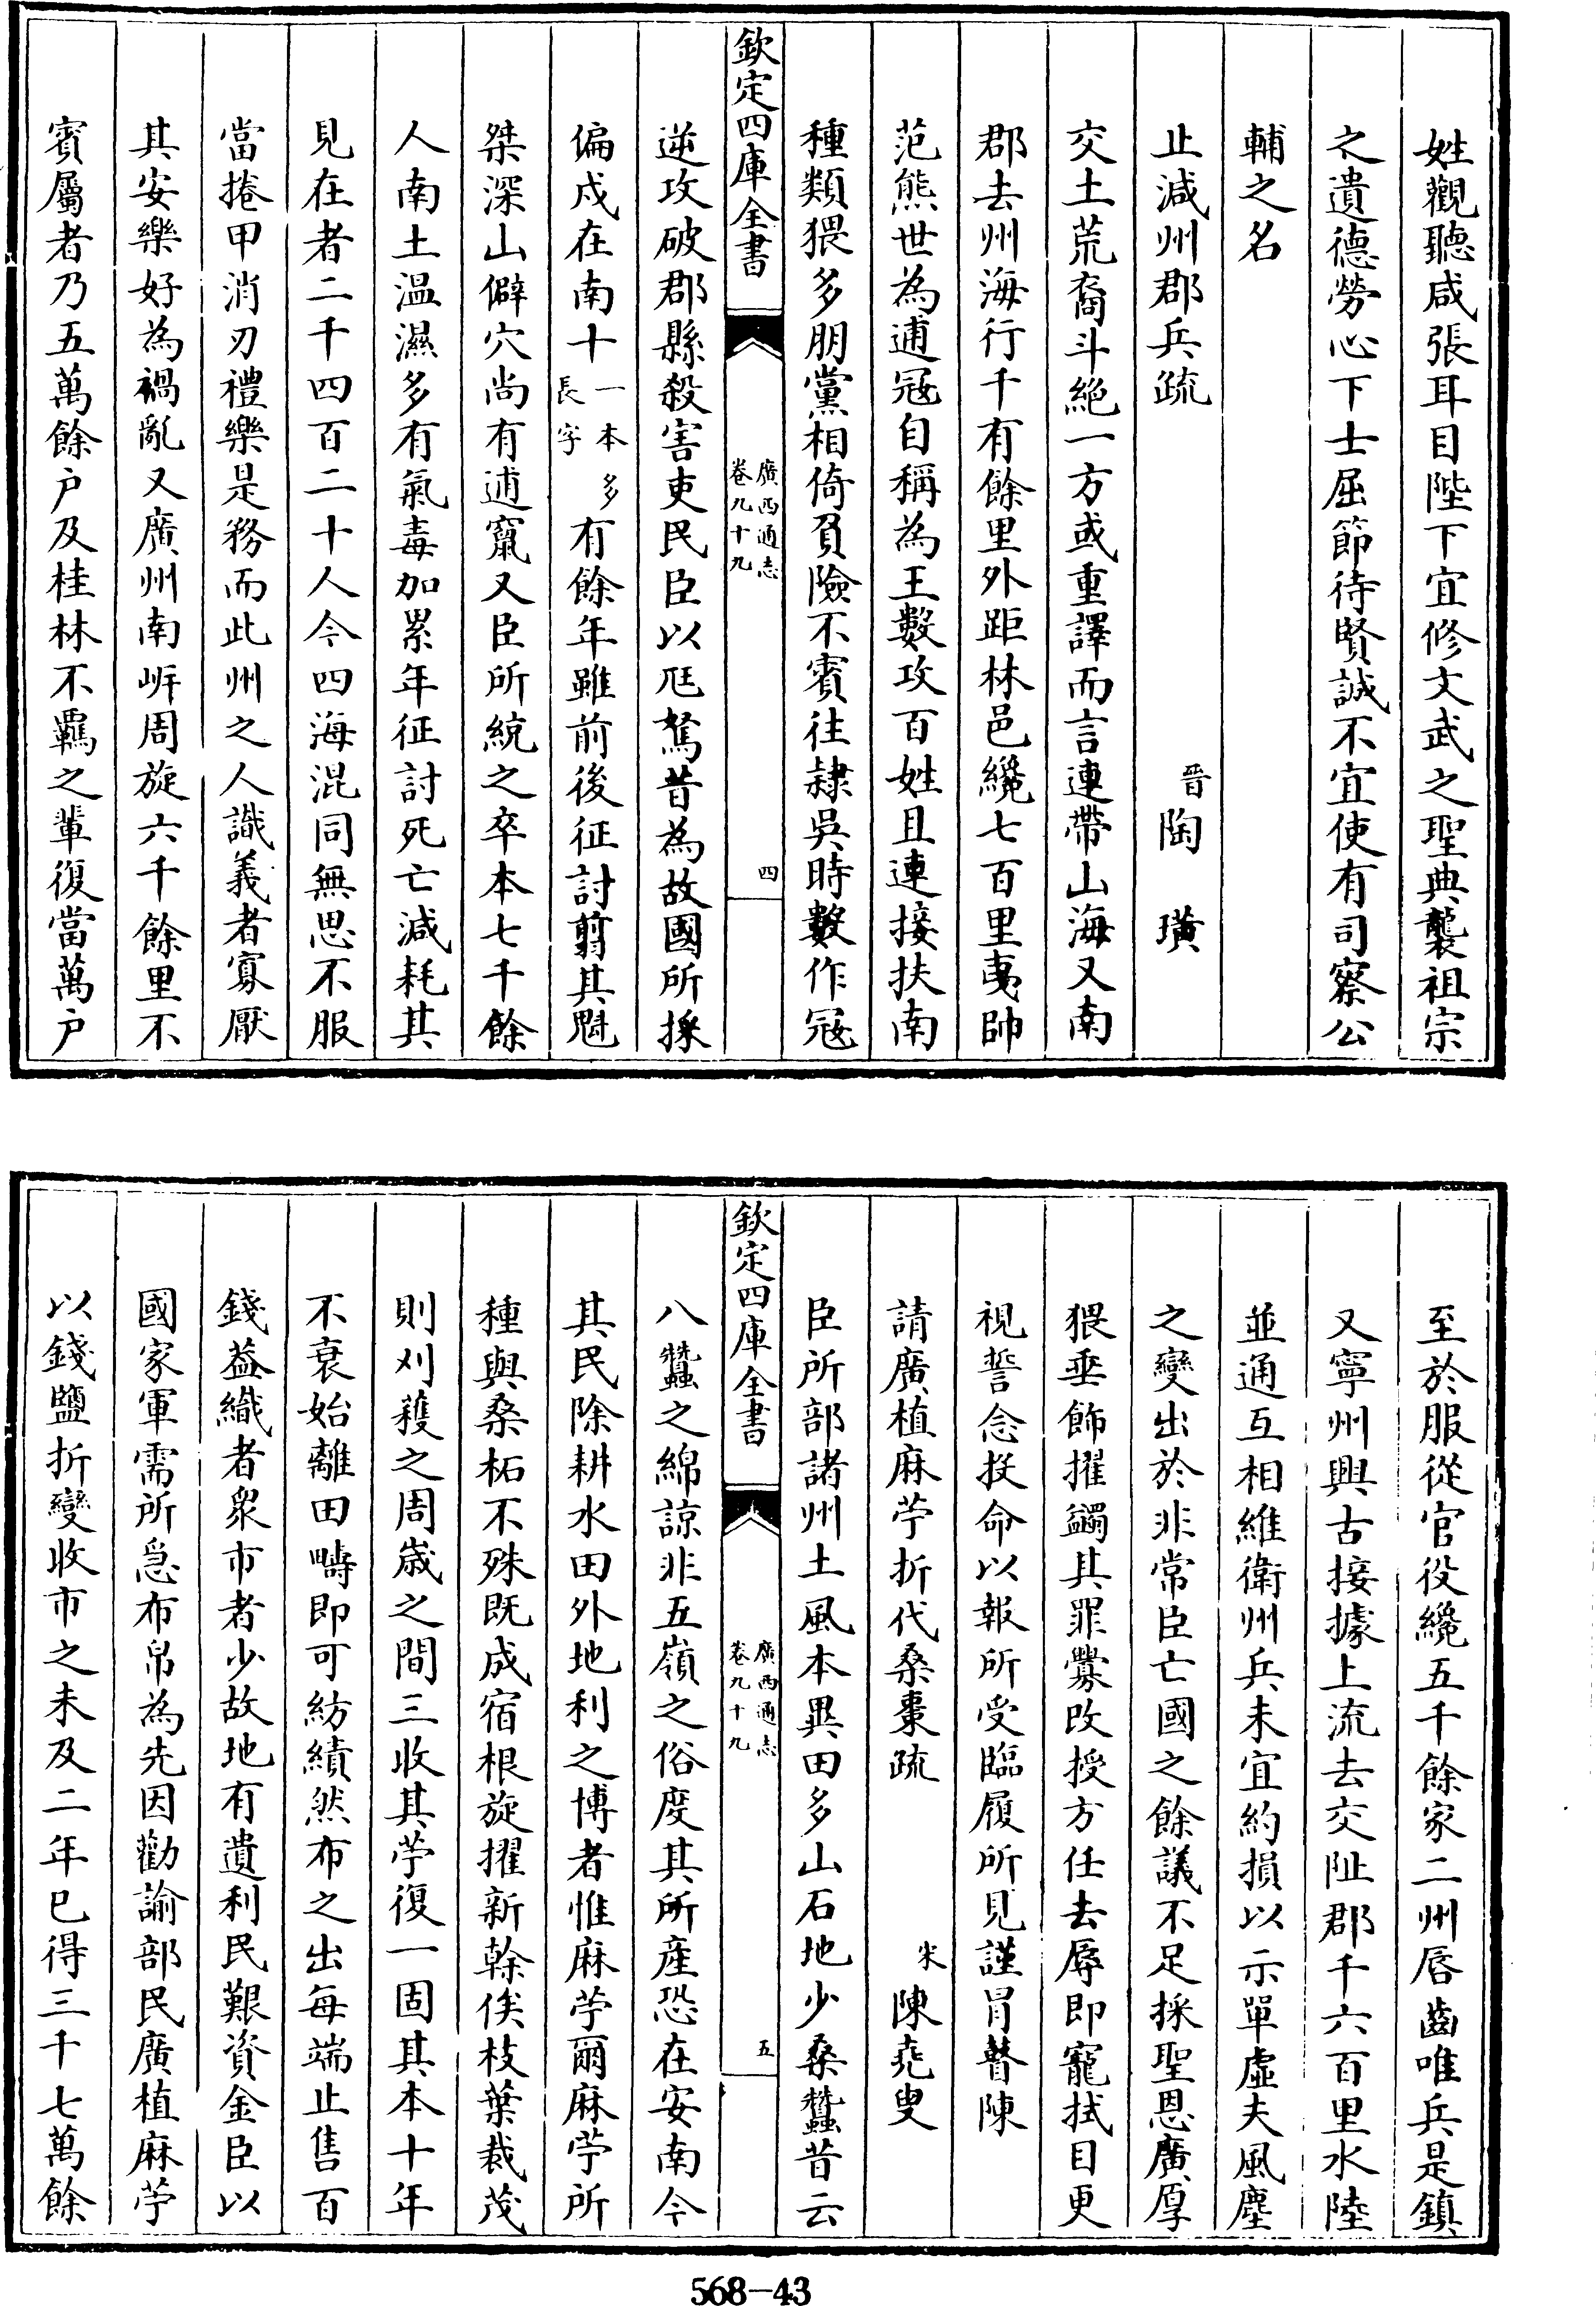 姓觀聽咸張耳目陛下宜修文武之聖典襲祖宗
之遺德勞心下士屈節待賢誠不宜使有司察公
輔之名
止減州郡兵疏 晉陶璜
交土荒裔斗絶一方或重譯而言連帶山海又南
郡去州海行千有餘里外距林邑纔七百里夷帥
范熊世為逋冦自稱為王數攻百姓且連接扶南
種類猥多朋黨相倚負險不賓往隷吳時數作冦
欽定四庫全書
廣西通志
卷九十九
四
逆攻破郡縣殺害吏民臣以尫駑昔為故國所採
偏戍在南十一本多長字有餘年雖前後征討翦其魁
桀深山僻穴尚有逋竄又臣所統之卒本七千餘
人南土温濕多有氣毒加累年征討死亡減耗其
見在者二千四百二十人今四海混同無思不服
當捲甲消刃禮樂是務而此州之人識義者寡厭
其安樂好為禍亂又廣州南岍周旋六千餘里不
賓屬者乃五萬餘户及桂林不羈之輩復當萬户
至於服從官役纔五千餘家二州唇齒唯兵是鎮
又寧州興古接據上流去交阯郡千六百里水陸
並通互相維衛州兵未宜約損以示單虛夫風塵
之變出於非常臣亡國之餘議不足採聖恩廣厚
猥垂飾擢蠲其罪釁改授方任去辱即寵拭目更
視誓念投命以報所受臨履所見謹冒瞽陳
請廣植麻苧折代桑棗疏 宋陳堯叟
臣所部諸州土風本異田多山石地少桑蠶昔云
欽定四庫全書
廣西通志
卷九十九
五
八蠶之綿諒非五嶺之俗度其所産恐在安南今
其民除耕水田外地利之博者惟麻苧爾麻苧所
種與桑柘不殊既成宿根旋擢新榦俟枝葉裁茂
則刈穫之周嵗之間三收其苧復一固其本十年
不衰始離田疇即可紡績然布之出每端止售百
錢葢織者衆市者少故地有遺利民艱資金臣以
國家軍需所急布帛為先因勸諭部民廣植麻苧
以錢鹽折變收市之未及二年已得三十七萬餘
568-43